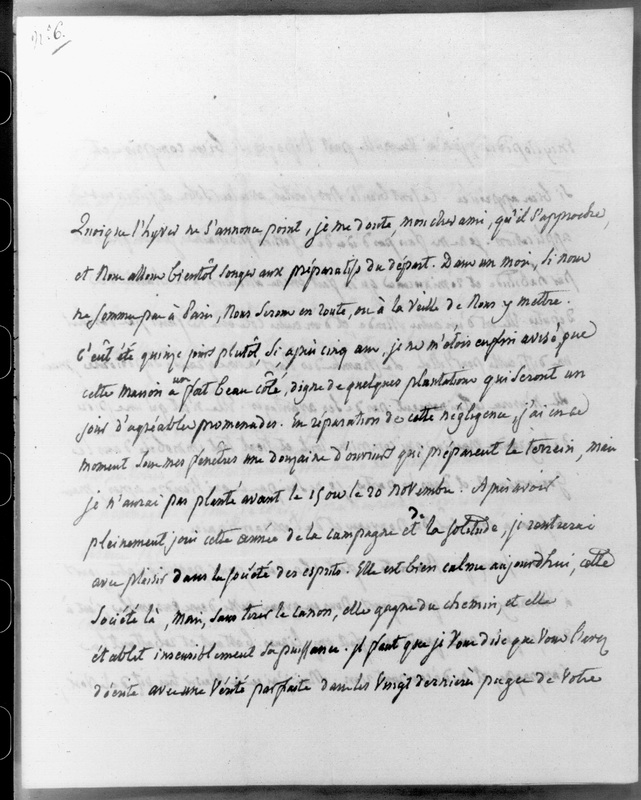 n.º 6.
Quoique l'hyver ne s'annonce point, je me doute, mon cher ami, qu'il s'approche,
et nous allons bientôt songer aux préparatifs du départ. Dans un mois, si nous
ne sommes pas à Paris, nous serons en route, ou à la veille de nous y mettre.
C'eût été quinze jours plutôt, si après cinq ans, je ne m'étois enfin avisé que
cette maison a un fort beau côté, digne de quelques plantations qui seront un
jour d'agréables promenades. En réparation de cette négligence, j'ai en ce
moment sous mes fenêtres une douzaine d'ouvriers qui préparent le terrein, mais
je n'aurai pas planté avant le 15 ou le 20 novembre. Après avoir
pleinement joui cette année de la campagne et de la solitude, je rentrerai
avec plaisir dans la société des esprits. Elle est bien calme aujourdhui, cette
société là, mais, sans tirer le canon, elle gagne du chemin, et elle
établit insensiblement sa puissance. Il faut que je vous dise que vous l'avez
décrite avec une vérité parfaite dans les vingt dernières pages de votre